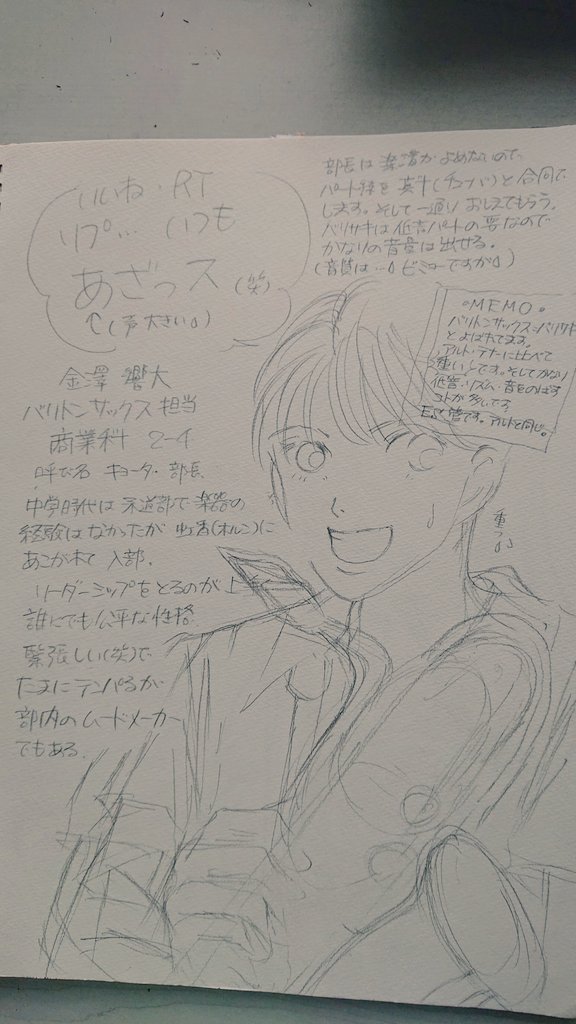 いいね・RT
リプ… いつも
あざっス(笑)
↑(声大きい)
部長は楽譜がよめないので
パート練を 真牛(チューバ)と合同で
します。そして一通り おしえてもらう。
バリサキは低音パートの要なので
かなりの音量は出せる。
(音質は… ビミョーですが)
○MEMO○
バリトンサックス=バリサキ
とよばれてます。
アルト・テナーに比べて
重いしです。そしてかなり
低音・リズム・音をのばす
コトが多いです。
Es管です。アルトと同じ。
金澤 響大
バリトンサックス 担当
商業科 2-4
呼び名 キョータ・部長
中学時代は柔道部で楽器の
経験はなかったが (ホルン)に
あこがれて 入部。
リーダーシップをとるのが上手
誰にでも公平な性格
緊張しい(笑)で
たまにテンパるが
部内のムードメーカー
でもある。
重っ